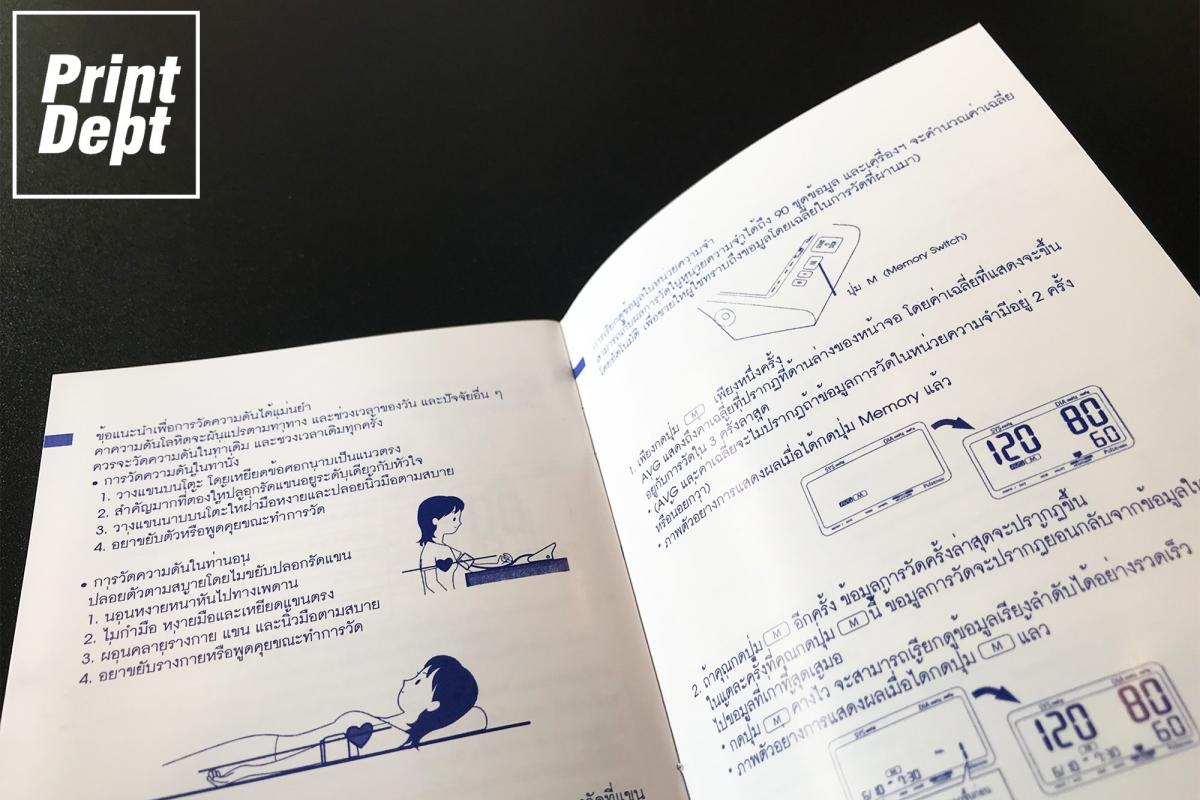 Print
Dept
ข้อแนะนำเพื่อการวัดความดันได้แม่นยำ
ค่าความดันโลหิตจะผันแปรตามท่าทาง และช่วงเวลาของวัน และปัจจัยอื่น ๆ
ควรจะวัดความดันในท่าเดิม และช่วงเวลาเดิมทุกครั้ง
• การวัดความดันในท่านั่ง
1. วางแขนบนโต๊ะ โดยเหยียดข้อศอกนาบเป็นแนวตรง
2. สำคัญมากที่ต้องให้ปลอกรัดแขนอยู่ระดับเดียวกับหัวใจ
3. วางแขนนาบบนโต๊ะให้ฝ่ามือหงายและปล่อยนิ้วมือตามสบาย
4. อย่าขยับตัวหรือพูดคุยขณะทำการวัด
• การวัดความดันในท่านอน
ปล่อยตัวตามสบายโดยไม่ขยับปลอกรัดแขน
1. นอนหงายหน้าหันไปทางเพดาน
2. ไม่กำมือ หงายมือและเหยียดแขนตรง
3. ผ่อนคลายร่างกาย แขน และนิ้วมือตามสบาย
4. อย่าขยับร่างกายหรือพูดคุยขณะทำการวัด
การเรียกดูข้อมูลในหน่วยความจำ
สามารถเก็บผลการวัดในหน่วยความจำได้ถึง 90 ชุดข้อมูล และเครื่องฯ จะคำนวณค่าเฉลี่ย
โดยอัตโนมัติ เพื่อช่วยให้ผู้ใช้ทราบถึงข้อมูลโดยเฉลี่ยในการวัดที่ผ่านมา)
ปุ่ม M (Memory Switch)
1. เพียงกดปุ่ม M เพียงหนึ่งครั้ง
AVG แสดงถึงค่าเฉลี่ยที่ปรากฏที่ด้านล่างของหน้าจอ โดยค่าเฉลี่ยที่แสดงจะขึ้น
อยู่กับการวัดใน 3 ครั้งล่าสุด
• (AVG และค่าเฉลี่ยจะไม่ปรากฏถ้าข้อมูลการวัดในหน่วยความจำมีอยู่ 2 ครั้ง
หรือน้อยกว่า)
• ภาพตัวอย่างการแสดงผลเมื่อได้กดปุ่ม Memory แล้ว
120 80
60
2. ถ้าคุณกดปุ่ม M อีกครั้ง ข้อมูลการวัดครั้งล่าสุดจะปรากฏขึ้น
ในแต่ละครั้งที่คุณกดปุ่ม M นี้ ข้อมูลการวัดจะปรากฏย้อนกลับจากข้อมูลให
ไปข้อมูลที่เก่าที่สุดเสมอ
• กดปุ่ม M ค้างไว้ จะสามารถเรียกดูข้อมูลเรียงลำดับได้อย่างรวดเร็ว
• ภาพตัวอย่างการแสดงผลเมื่อได้กดปุ่ม M แล้ว
120 80
60